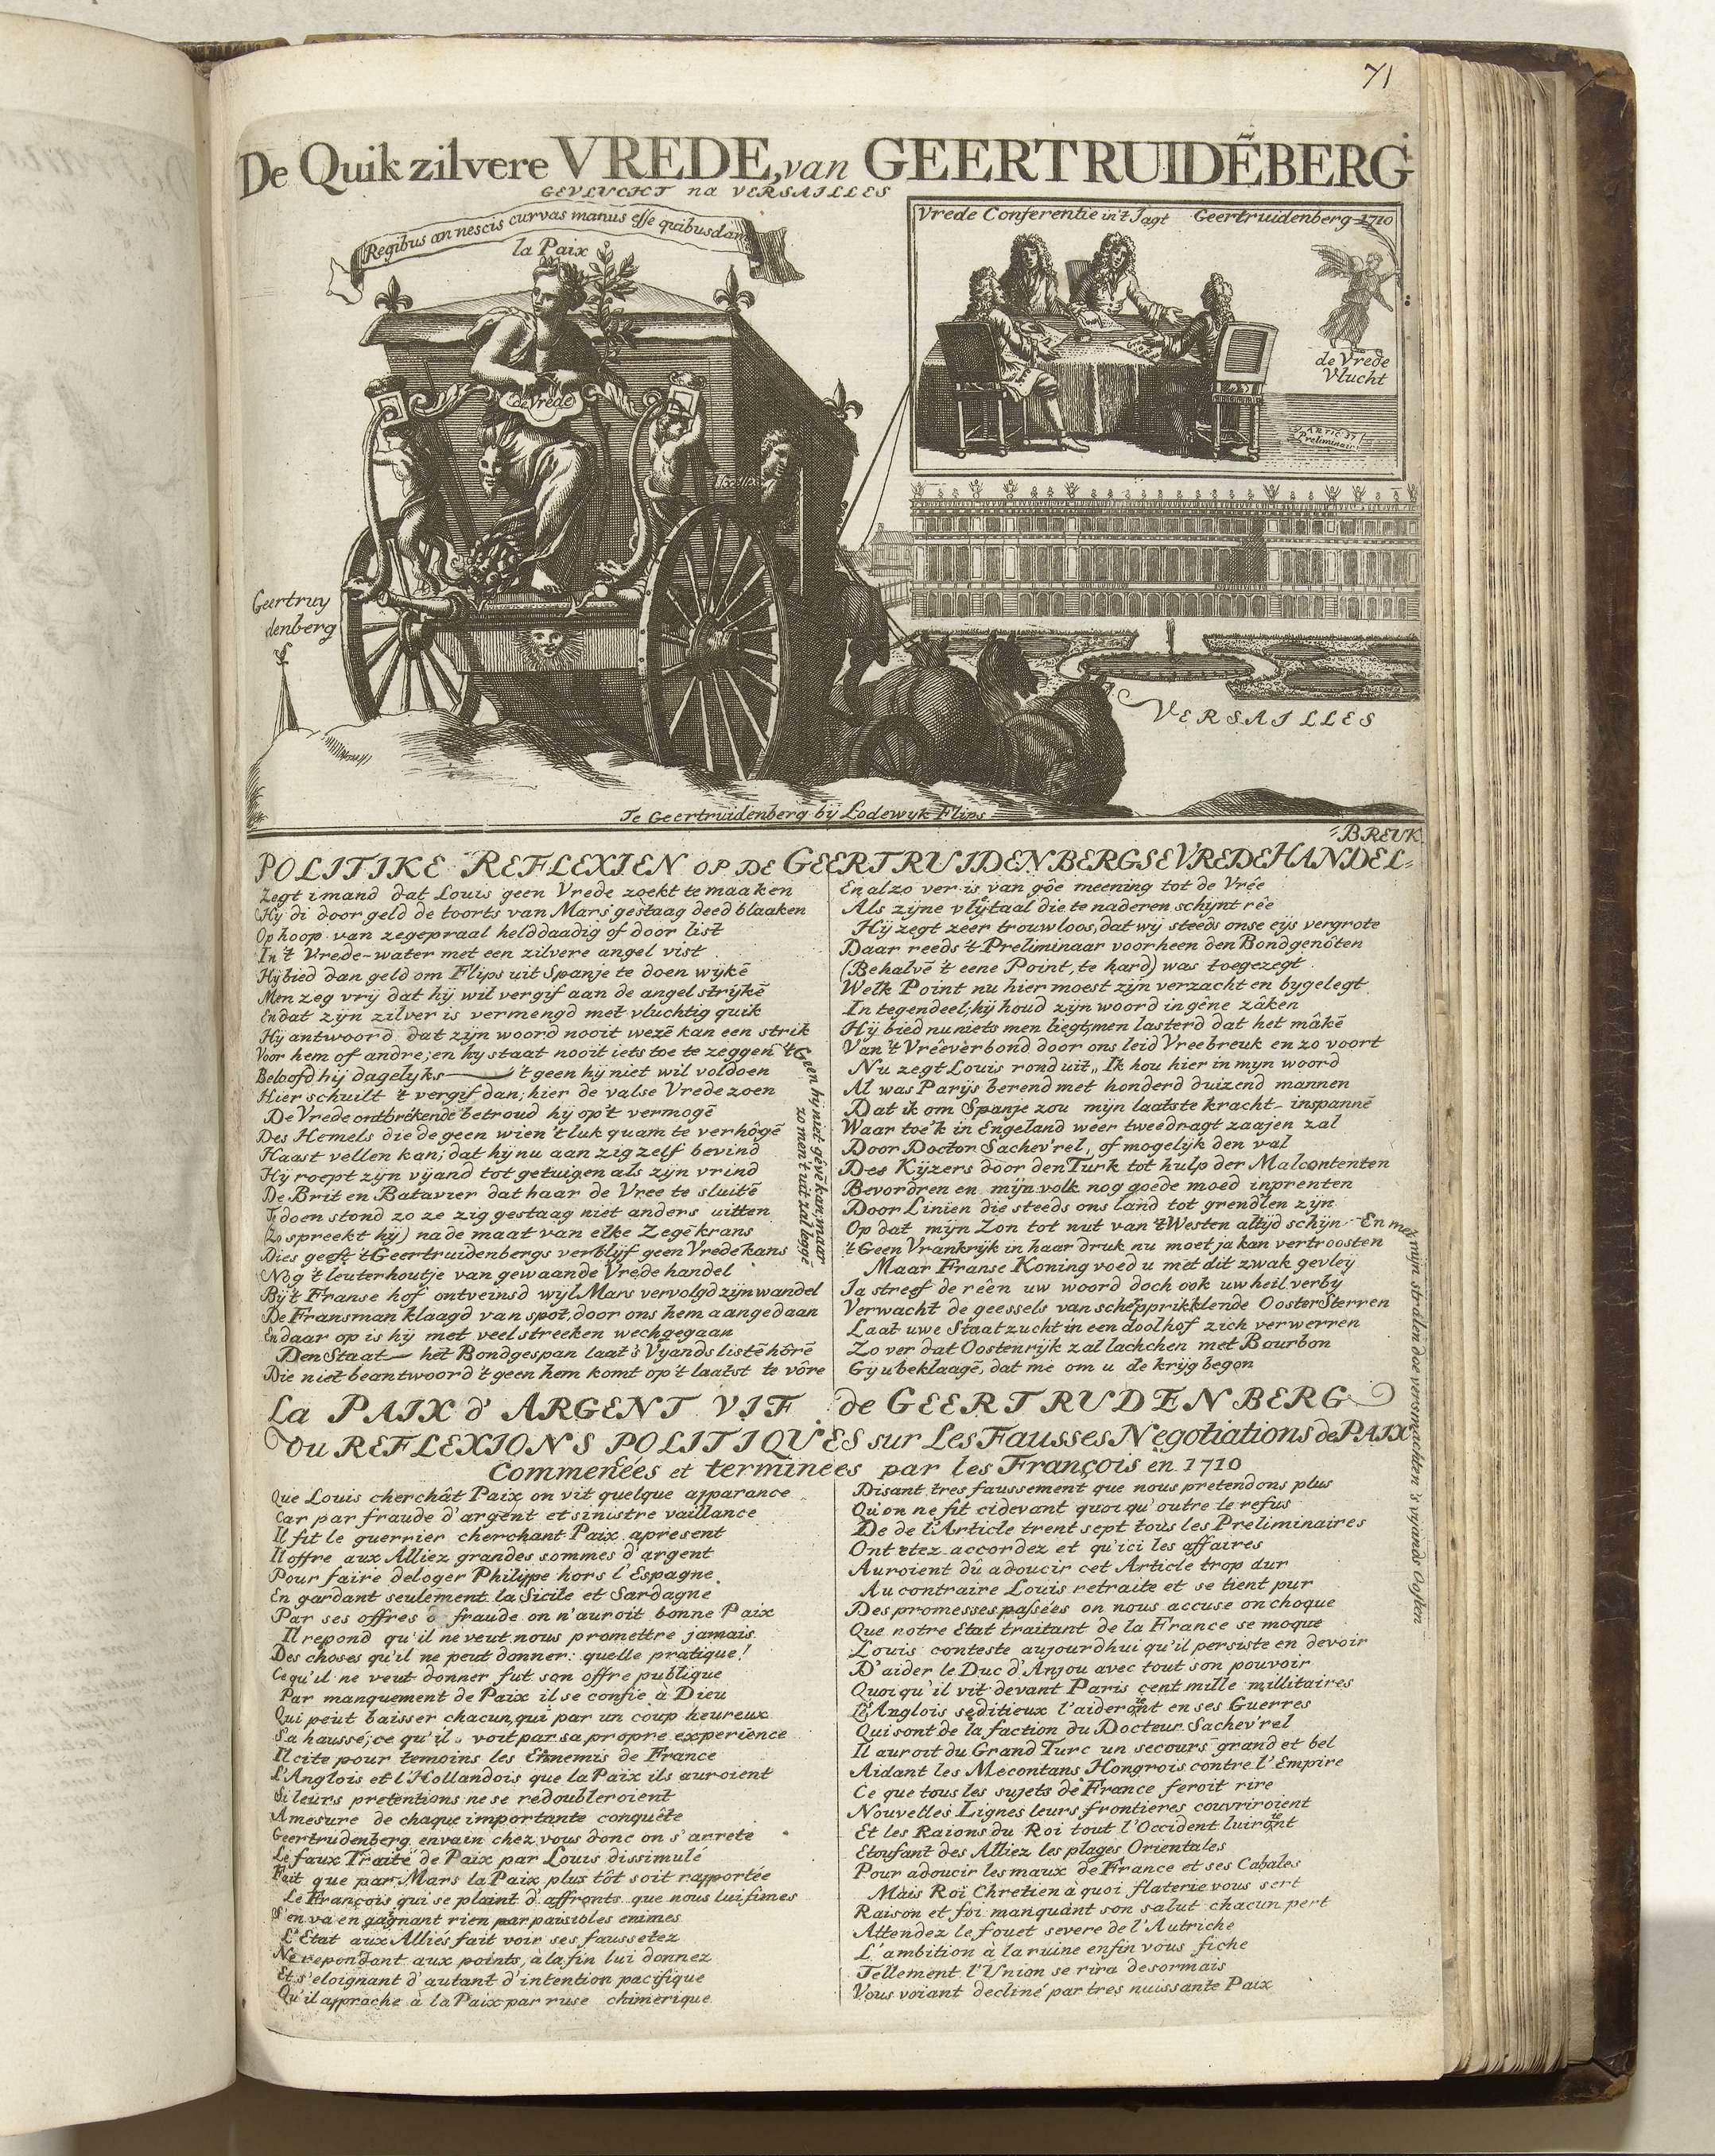 71
De Quik zilvere VREDE, van GEERTRUIDẼBERG
GEVLUCHT na VERSAILLES
Regibus an nescis curvas manus esse quibusdam
la Paix
Vrede Conferentie in't Jagt Geertruidenberg 1710
de Vrede
Vlucht
ARTIC 37
Preliminair
de Vrede
Geertruy
denberg
VERSAILLES
Te Geertruidenberg bij Lodewyk Flips
POLITIKE REFLEXIEN OP DE GEERTRUIDENBERGSE VREDEHANDEL=
=BREUK
Zegt imand dat Louis geen Vrede zoekt te maaken
Hij di door geld de toorts van Mars gestaag deed blaaken
Op hoop van zegepraal helddaadig of door list
In't Vrede-water met een zilvere angel vist
Hij bied dan geld om Flips uit Spanje te doen wykẽ
Men zeg vrij dat hij wil vergif aan de angel strijkẽ
En dat zijn zilver is vermengd met vluchtig quik
Hy antwoord dat zijn woord nooit wezẽ kan een strik
Voor hem of andre; en hy staat nooit iets toe te zeggen
't Geen hij niet gevẽ kan, maar
zo men't uit zal leggẽ
Beloofd hij dagelyks 't geen hij niet wil voldoen
Hier schuilt 't vergif dan; hier de valse Vrede zoen
De Vrede ontbrékende betroud hij op't vermogẽ
Des Hemels die de geen wien 't luk quam te verhôgẽ
Haast vellen kan; dat hij nu aan zig zelf bevind
Hij roept zijn vijand tot getuigen als zijn vrind
De Brit en Batavier dat haar de Vree te sluitẽ
Te doen stond zo ze zig gestaag niet anders uitten
(Zo spreekt hij) na de maat van elke Zegẽ krans
Dies geeft 't Geertruidenbergs verblijf geen Vrede kans
Nog 't leuterhoutje van gewaande Vrede handel
Bij't Franse hof ontveinsd wijl Mars vervolgd zijn wandel
De Fransman klaagd van spot, door ons hem aangedaan
En daar op is hij met veel streeken wechgegaan
Den Staat het Bondgespan laat 's Vyands listẽ hôrẽ
Die niet beantwoord 't geen hem komt op't laatst te vôre
En alzo ver is van gôe meening tot de Vrêe
Als zijne vlijtaal die te naderen schijnt rêe
Hij zegt zeer trouwloos, dat wij steeds onse eijs vergrote
Daar reeds 't Preliminaar voorheen den Bondgenôten
(Behalvẽ 't eene Point, te hard) was toegezegt
Welk Point nu hier moest zijn verzacht en bygelegt
In tegendeel; hij houd zijn woord in gêne zâken
Hij bied nu niets men liegt; men lasterd dat het mâkẽ
Van 't Vrêeverbond door ons leid Vreebreuk en zo voort
Nu zegt Louis rond uit „ Ik hou hier in myn woord
Al was Parijs berend met honderd duizend mannen
Dat ik om Spanje zou mijn laatste kracht inspannẽ
Waar toe'k in Engeland weer tweedragt zaajen zal
Door Doctor Sachev'rel, of mogelijk den val
Des Kijzers door den Turk tot hulp der Malcontenten
Bevordren en mijn volk nog goede moed inprenten
Door Linien die steeds ons land tot grendlen zijn
Op dat mijn Zon tot nut van 't Westen altijd schijn
En met mijn stralen doe versmachten 's vyands Oosten
't Geen Vrankrijk in haar druk nu moet ja kan vertroosten
Maar Franse Koning voed u met dit zwak gevleij
Ja streef de rêen uw woord doch ook uw heil verby
Verwacht de geessels van schepprikklende OosterSterren
Laat uwe Staatzucht in een doolhof zich verwerren
Zo ver dat Oostenrijk zal lachchen met Bourbon
Gy u beklaagẽ, dat me om u de krijg begon
La PAIX d' ARGENT VIF de GEERTRUDENBERG
OU REFLEXIONS POLITIQUES sur Les Fausses Negotiations de PAIX
Commeneées et terminees par les François en 1710
Que Louis cherchât Paix on vit quelque apparance
Car par fraude d'argent et sinistre vaillance
Il fit le guerrier cherchant Paix apresent
Il offre aux Alliez grandes sommes d'argent
Pour faire deloger Philippe hors l'Espagne
En gardant seulement la Sicile et Sardagne
Par ses offres ô fraude on n'auroit bonne Paix
Il repond qu'il ne veut nous promettre jamais
Des choses qu'il ne peut donner: quelle pratique!
Ce qu'il ne veut donner fut son offre publique
Par manquement de Paix il se confie à Dieu
Qui peut baisser chacun, qui par un coup heureux
S'a haussé; ce qu'il voit par sa propre experience
Il cite pour temoins les Ennemis de France
L'Anglois et l'Hollandois que la Paix ils auroient
Si leurs pretentions ne se redoubleroient
A mesure de chaque importante conquête
Geertrudenberg envain chez vous donc on s'arrete
Le faux Traité de Paix par Louis dissimulé
Fait que par Mars la Paix plus tôt soit rapportée
Le François qui se plaint d'affronts que nous lui fimes
S'en va en gagnant rien par paisioles enimes
L'Etat aux Alliés fait voir ses faussetez
Ne repondant aux points, à la fin lui donnez
Et s'eloignant d'autant d'intention pacifique
Qu'il approche à la Paix par ruse chimerique
Disant tres faussement que nous pretendons plus
Qu'on ne fit cidevant quoi qu'outre le refus
De de l'Article trent sept tous les Preliminaires
Ont etez accordez et qu'ici les affaires
Auroient dû adoucir cet Article trop dur
Au contraire Louis retraite et se tient pur
Des promesses passées on nous accuse on choque
Que notre Etat traitant de la France se moque
Louis conteste aujourdhui qu'il persiste en devoir
D'aider le Duc d'Anjou avec tout son pouvoir
Quoi qu'il vit devant Paris cent mille millitaires
Les Anglois seditieux l'aideront en ses Guerres
Qui sont de la faction du Docteur Sachev'rel
Il auroit du Grand Turc un secours grand et bel
Aidant les Mecontans Hongrois contre l'Empire
Ce que tous les sujets de France feroit rire
Nouvelles Lignes leurs frontieres couvriroient
Et les Raions du Roi tout l'Occident luiront
Etoufant des Alliez les plages Orientales
Pour adoucir les maux de France et ses Cabales
Mais Roi Chretien à quoi flaterie vous sert
Raison et foi manquant son salut chacun pert
Attendez le fouet severe de l'Autriche
L'ambition à la ruine enfin vous fiche
Tellement l'Union se rira desormais
Vous voiant decliné par tres nuissante Paix